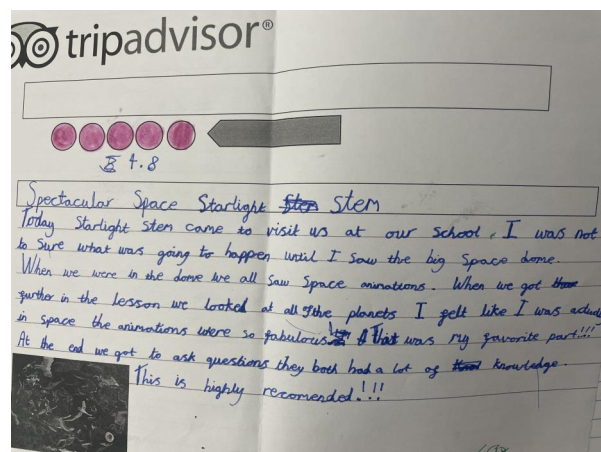 tripadvisor®
4.8
Spectacular Space Starlight Stem
Today Starlight Stem came to visit us at our school. I was not
to sure what was going to happen until I saw the big space dome.
When we were in the dome we all saw space animations. When we got
further in the lesson we looked at all of the planets I felt like I was
in space the animations were so fabulous That was my favorite part!!!
At the end we got to ask questions they both had a lot of knowledge.
This is highly recomended!!!